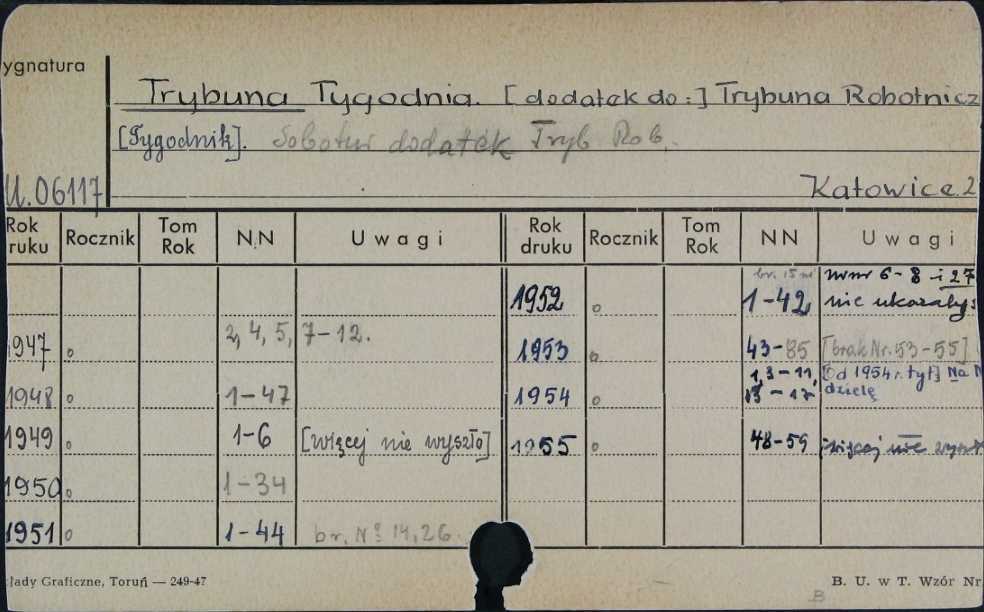 ygnatura
Trybuna Tygodnia. [dodatek do:] Trybuna Robotnicz
[Tygodnik]. Sobotni dodatek Tryb Rob.
U.06117
Katowice.2
Rok ruku Rocznik Tom Rok N.N Uwagi Rok druku Rocznik Tom Rok NN Uwagi
1952 o br. 15 1-42 nrnr 6-8 i 27 nie ukazały s
1947 o 2, 4, 5, 7-12.
1953 o 43-85 [brak Nr. 53-55]
1948 o 1-47
1954 o 1,3-11, 13-17 [Od 1954 r. tyt] Na N dzielę
1949 o 1-6 [więcej nie wyszło]
1955 o 48-59 więcej nie
1950 o 1-34
1951 o 1-44 br. Nº 14, 26.
łady Graficzne, Toruń — 249-47
B. U. w T. Wzór Nr
B